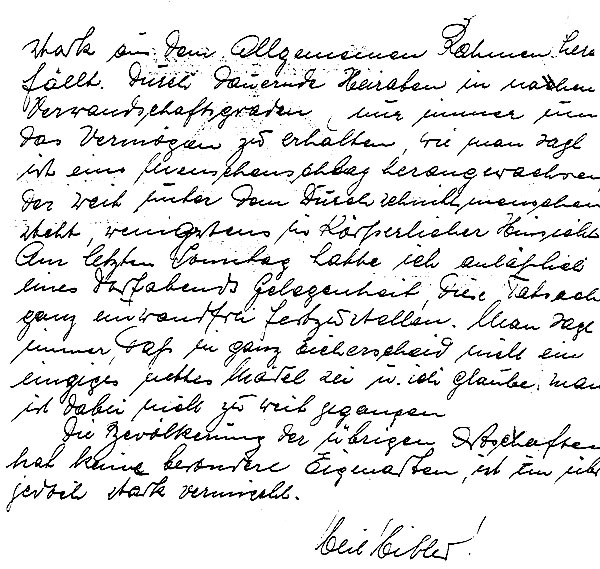 stark aus dem Allgemeinen Rahmen hera
fällt. Durch dauernde Heiraten in nahen
Verwandschaftsgraden, nur immer um
das Vermögen zu erhalten, wie man sagt
ist eine Menschenschlag herangewachsen
der weit unter dem Durchschnittsmenschen
steht, wenigstens in Körperlicher Hinsicht
Am letzten Sonntag hatte ich anläßlich
eines Dorfabends Gelegenheit, diese Tatsach
ganz einwandfrei festzustellen. Man sagt
immer, daß in ganz nicht ein
einziges nettes Mädel sei u. ich glaube, man
ist dabei nicht zu weit gegangen
Die Bevölkerung der übrigen Ortschaften
hat keine besondere Eigenarten, ist im übr
jedoch stark vermischt.
Heil Hitler!